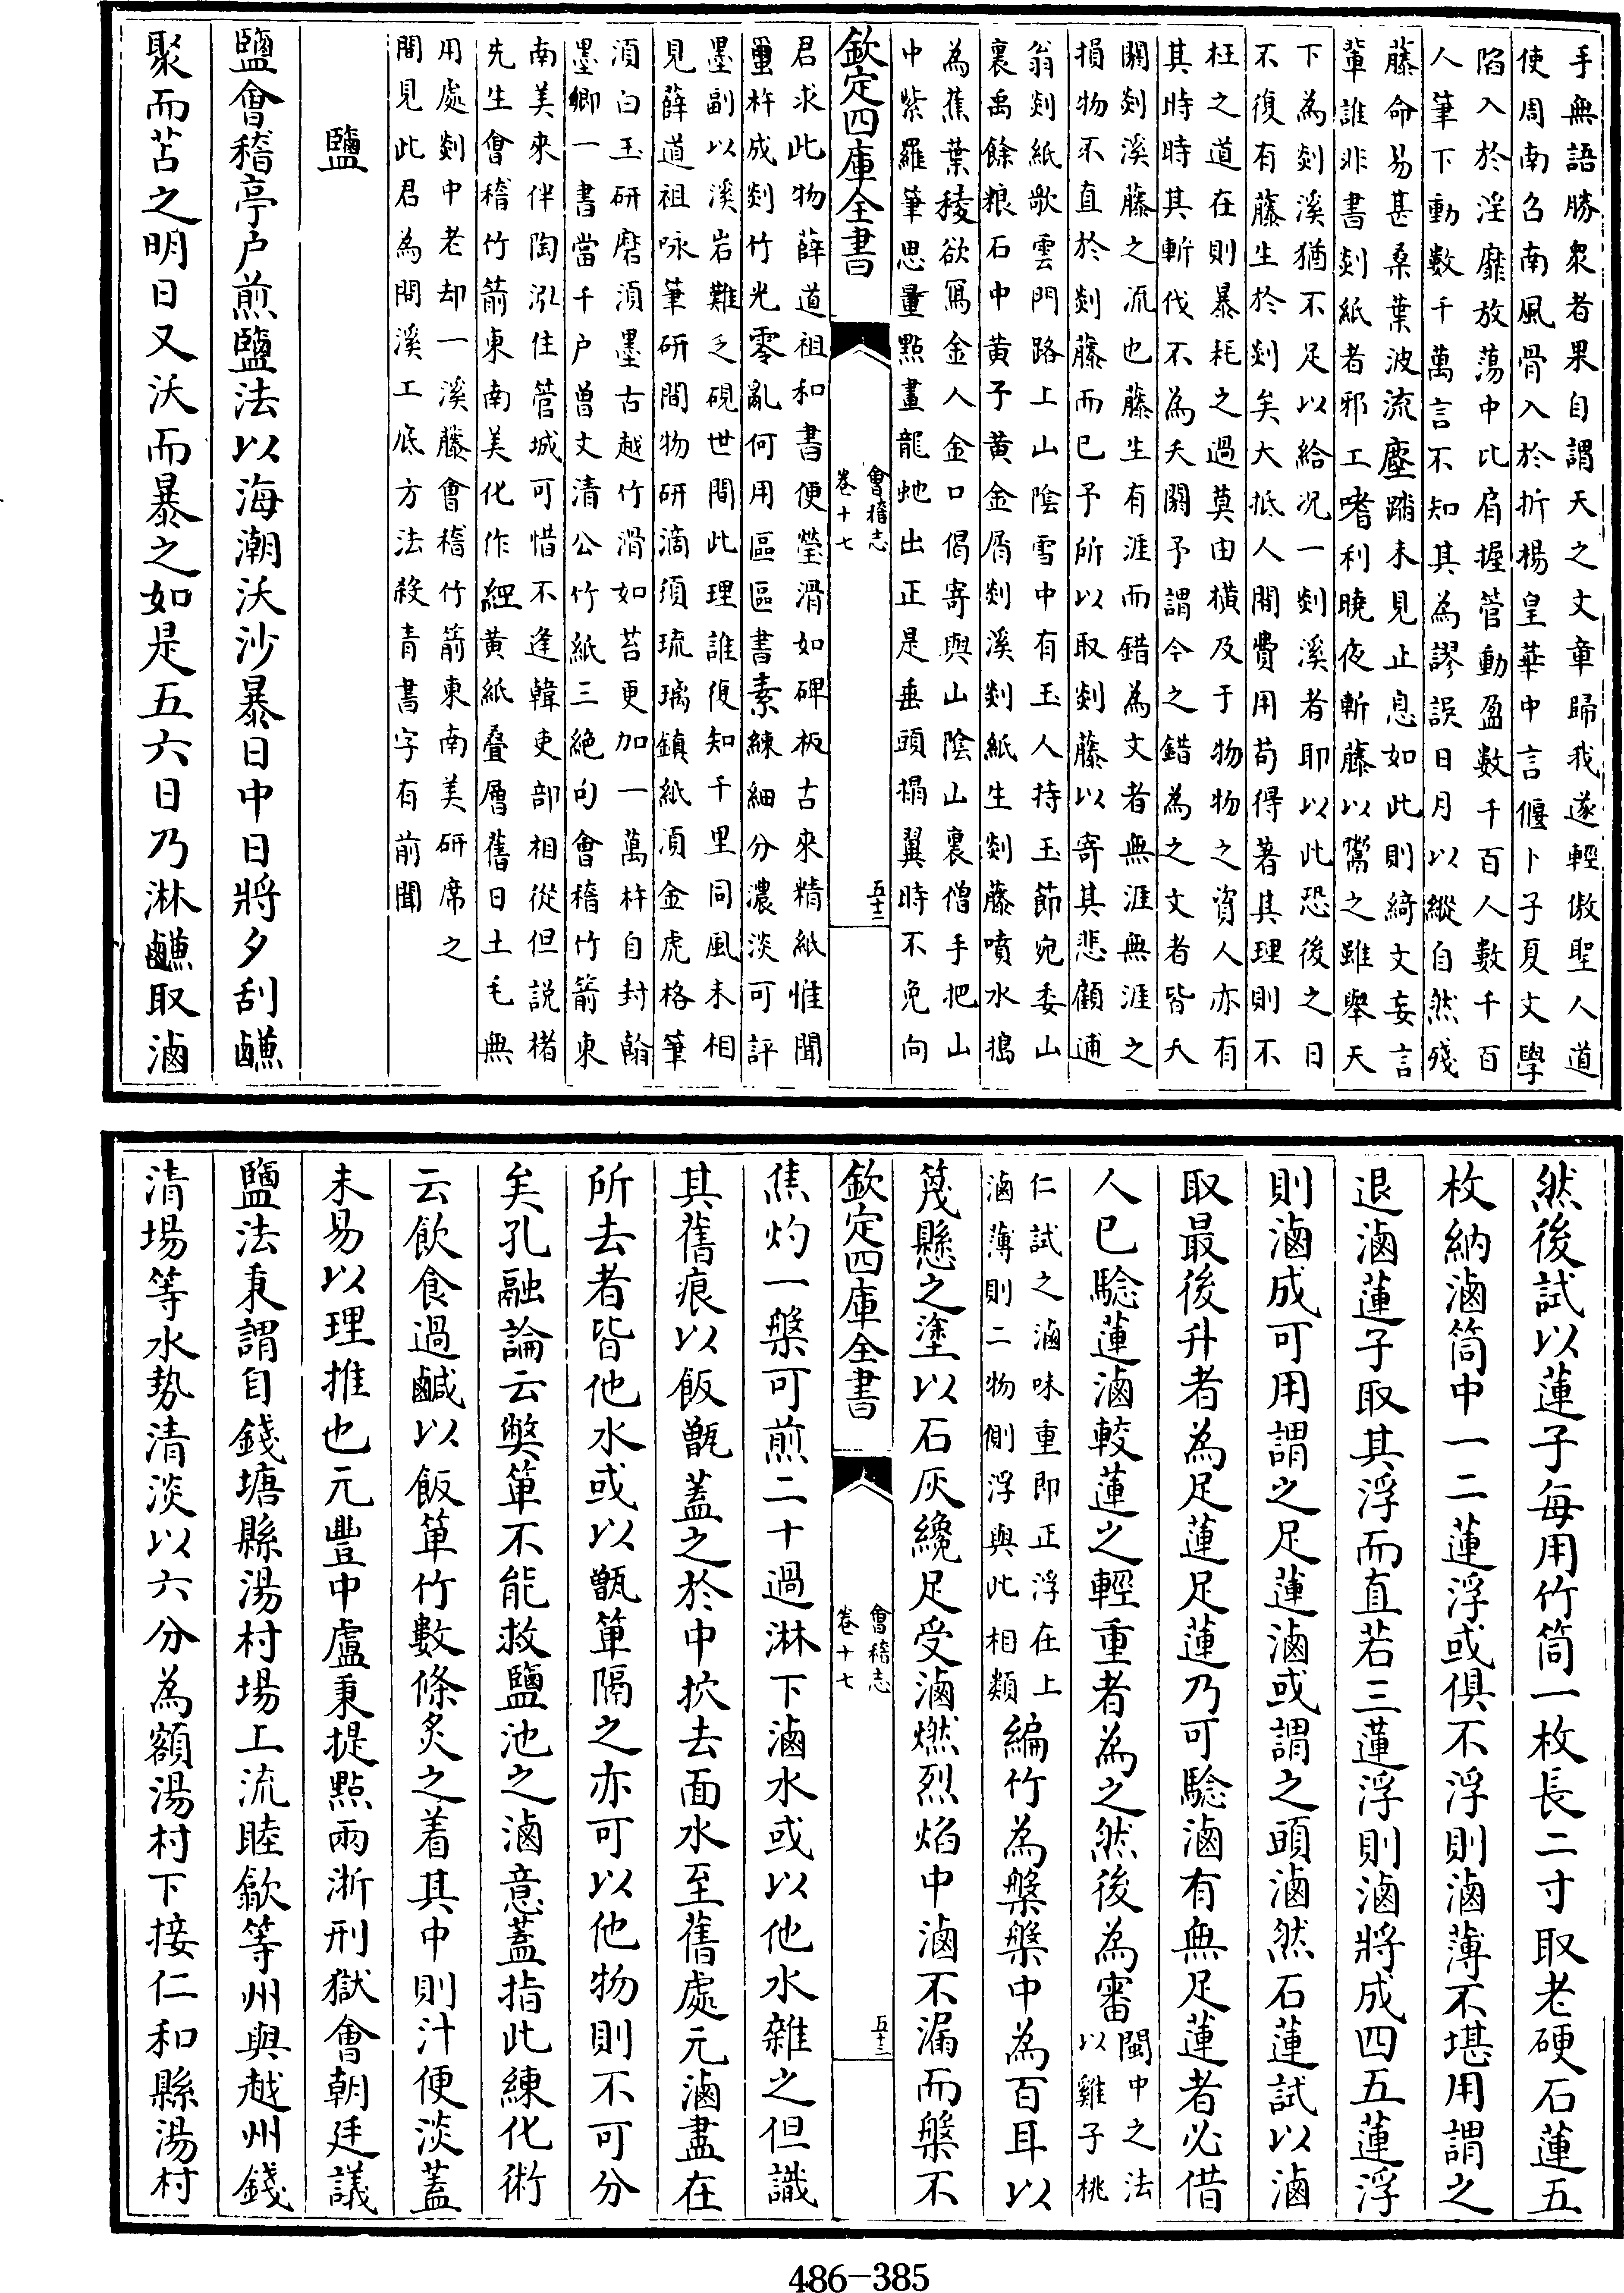 手無語勝衆者果自謂天之文章歸我遂輕傲聖人道
使周南召南風骨入於折揚皇華中言偃卜子夏文學
陷入於淫靡放蕩中比肩握管動盈數千百人數千百
人筆下動數千萬言不知其為謬誤日月以縱自然殘
藤命易甚桑葉波流塵踏未見止息如此則綺文妄言
輩誰非書剡紙者邪工嗜利曉夜斬藤以鬻之雖舉天
下為剡溪猶不足以給况一剡溪者耶以此恐後之日
不復有藤生於剡矣大抵人間費用苟得著其理則不
枉之道在則暴耗之過莫由橫及于物物之資人亦有
其時時其斬伐不為夭閼予謂今之錯為之文者皆夭
閼剡溪藤之流也藤生有涯而錯為文者無涯無涯之
損物不直於剡藤而已予所以取剡藤以寄其悲顧逋
翁剡紙歌雲門路上山陰雪中有玉人持玉節宛委山
裏禹餘粮石中黄子黄金屑剡溪剡紙生剡藤噴水搗
為蕉葉稜欲寫金人金口偈寄與山陰山裏僧手把山
中紫羅筆思量點畫龍虵出正是垂頭搨翼時不免向
欽定四庫全書
會稽志
卷十七
五十二
君求此物薛道祖和書便瑩滑如碑板古來精紙惟聞
蠒杵成剡竹光零亂何用區區書素練細分濃淡可評
墨副以溪岩難乏硯世間此理誰復知千里同風未相
見薛道祖咏筆研間物研滴須琉璃鎮紙須金虎格筆
須白玉研磨須墨古越竹滑如苔更加一萬杵自封翰
墨卿一書當千户曾文清公竹紙三絶句會稽竹箭東
南美來伴陶泓住管城可惜不逢韓吏部相從但説楮
先生會稽竹箭東南美化作經黄紙叠層舊日土毛無
用處剡中老却一溪藤會稽竹箭東南美研席之
間見此君為問溪工底方法殺青書字有前聞
鹽
鹽會稽亭户煎鹽法以海潮沃沙暴日中日將夕刮鹻
聚而苫之明日又沃而暴之如是五六日乃淋鹻取滷
然後試以蓮子每用竹筒一枚長二寸取老硬石蓮五
枚納滷筒中一二蓮浮或俱不浮則滷薄不堪用謂之
退滷蓮子取其浮而直若三蓮浮則滷將成四五蓮浮
則滷成可用謂之足蓮滷或謂之頭滷然石蓮試以滷
取最後升者為足蓮足蓮乃可騐滷有無足蓮者必借
人已騐蓮滷較蓮之輕重者為之然後為審閩中之法
以雞子桃
仁試之滷味重即正浮在上
滷薄則二物側浮與此相類編竹為槃槃中為百耳以
篾懸之塗以石灰纔足受滷燃烈焰中滷不漏而槃不
欽定四庫全書
會稽志
卷十七
五十三
焦灼一槃可煎二十過淋下滷水或以他水雜之但識
其舊痕以飯甑蓋之於中抌去面水至舊處元滷盡在
所去者皆他水或以甑箄隔之亦可以他物則不可分
矣孔融論云獘箄不能救鹽池之滷意蓋指此練化術
云飲食過鹹以飯箄竹數條炙之着其中則汁便淡蓋
未易以理推也元豐中盧秉提點兩浙刑獄會朝廷議
鹽法秉謂自錢塘縣湯村場上流睦歙等州與越州錢
清場等水勢清淡以六分為額湯村下接仁和縣湯村
486-385